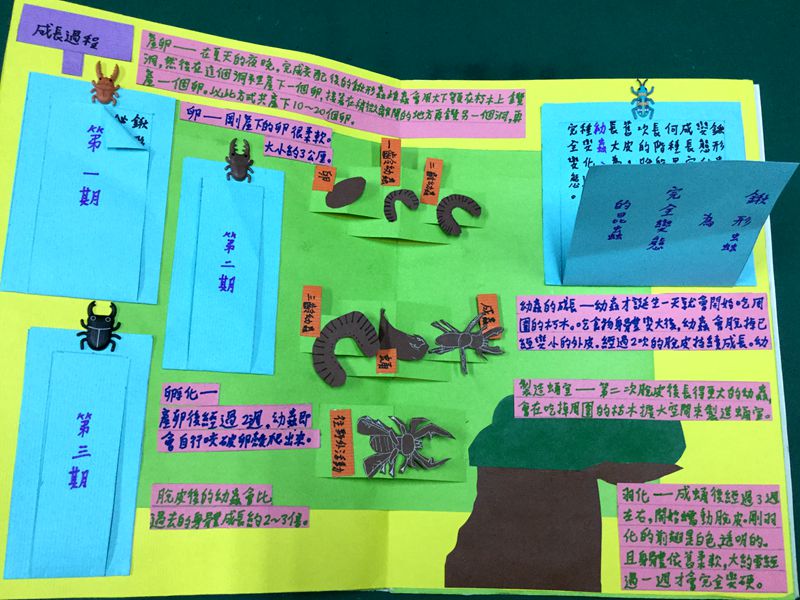 成長過程
產卵——在夏天的夜晚,完成交配後的鍬形蟲雌蟲會用大下顎在朽木上鑽
洞,然後在這個洞裡產下一個卵,接著在稍微離開的地方再鑽另一個洞,再
產一個卵。以此方式共產下10~20個卵。
卵——剛產下的卵很柔軟。
大小約3公厘。
第一期
第二期
第三期
卵
一齡幼蟲
二齡幼蟲
三齡幼蟲
成蟲
往野外活動
鍬形蟲
為
完全變態
的昆蟲
幼蟲的成長——幼蟲才誕生一天就會開始吃周
圍的朽木。吃食物身體變大後,幼蟲會脫掉已
經變小的外皮。經過2次的脫皮持續成長。幼
製造蛹室——第二次脫皮後長得更大的幼蟲,
會在吃掉周圍的朽木擴大空間來製造蛹室。
孵化——
產卵後經過2週,幼蟲即
會自行咬破卵殼爬出來。
脫皮後的幼蟲會比
過去的身體成長約2~3倍。
羽化——成蛹後經過3週
左右,開始蠕動脫皮。剛羽
化的前翅是白色透明的。
且身體依舊柔軟,大約要經
過一週才會完全變硬。